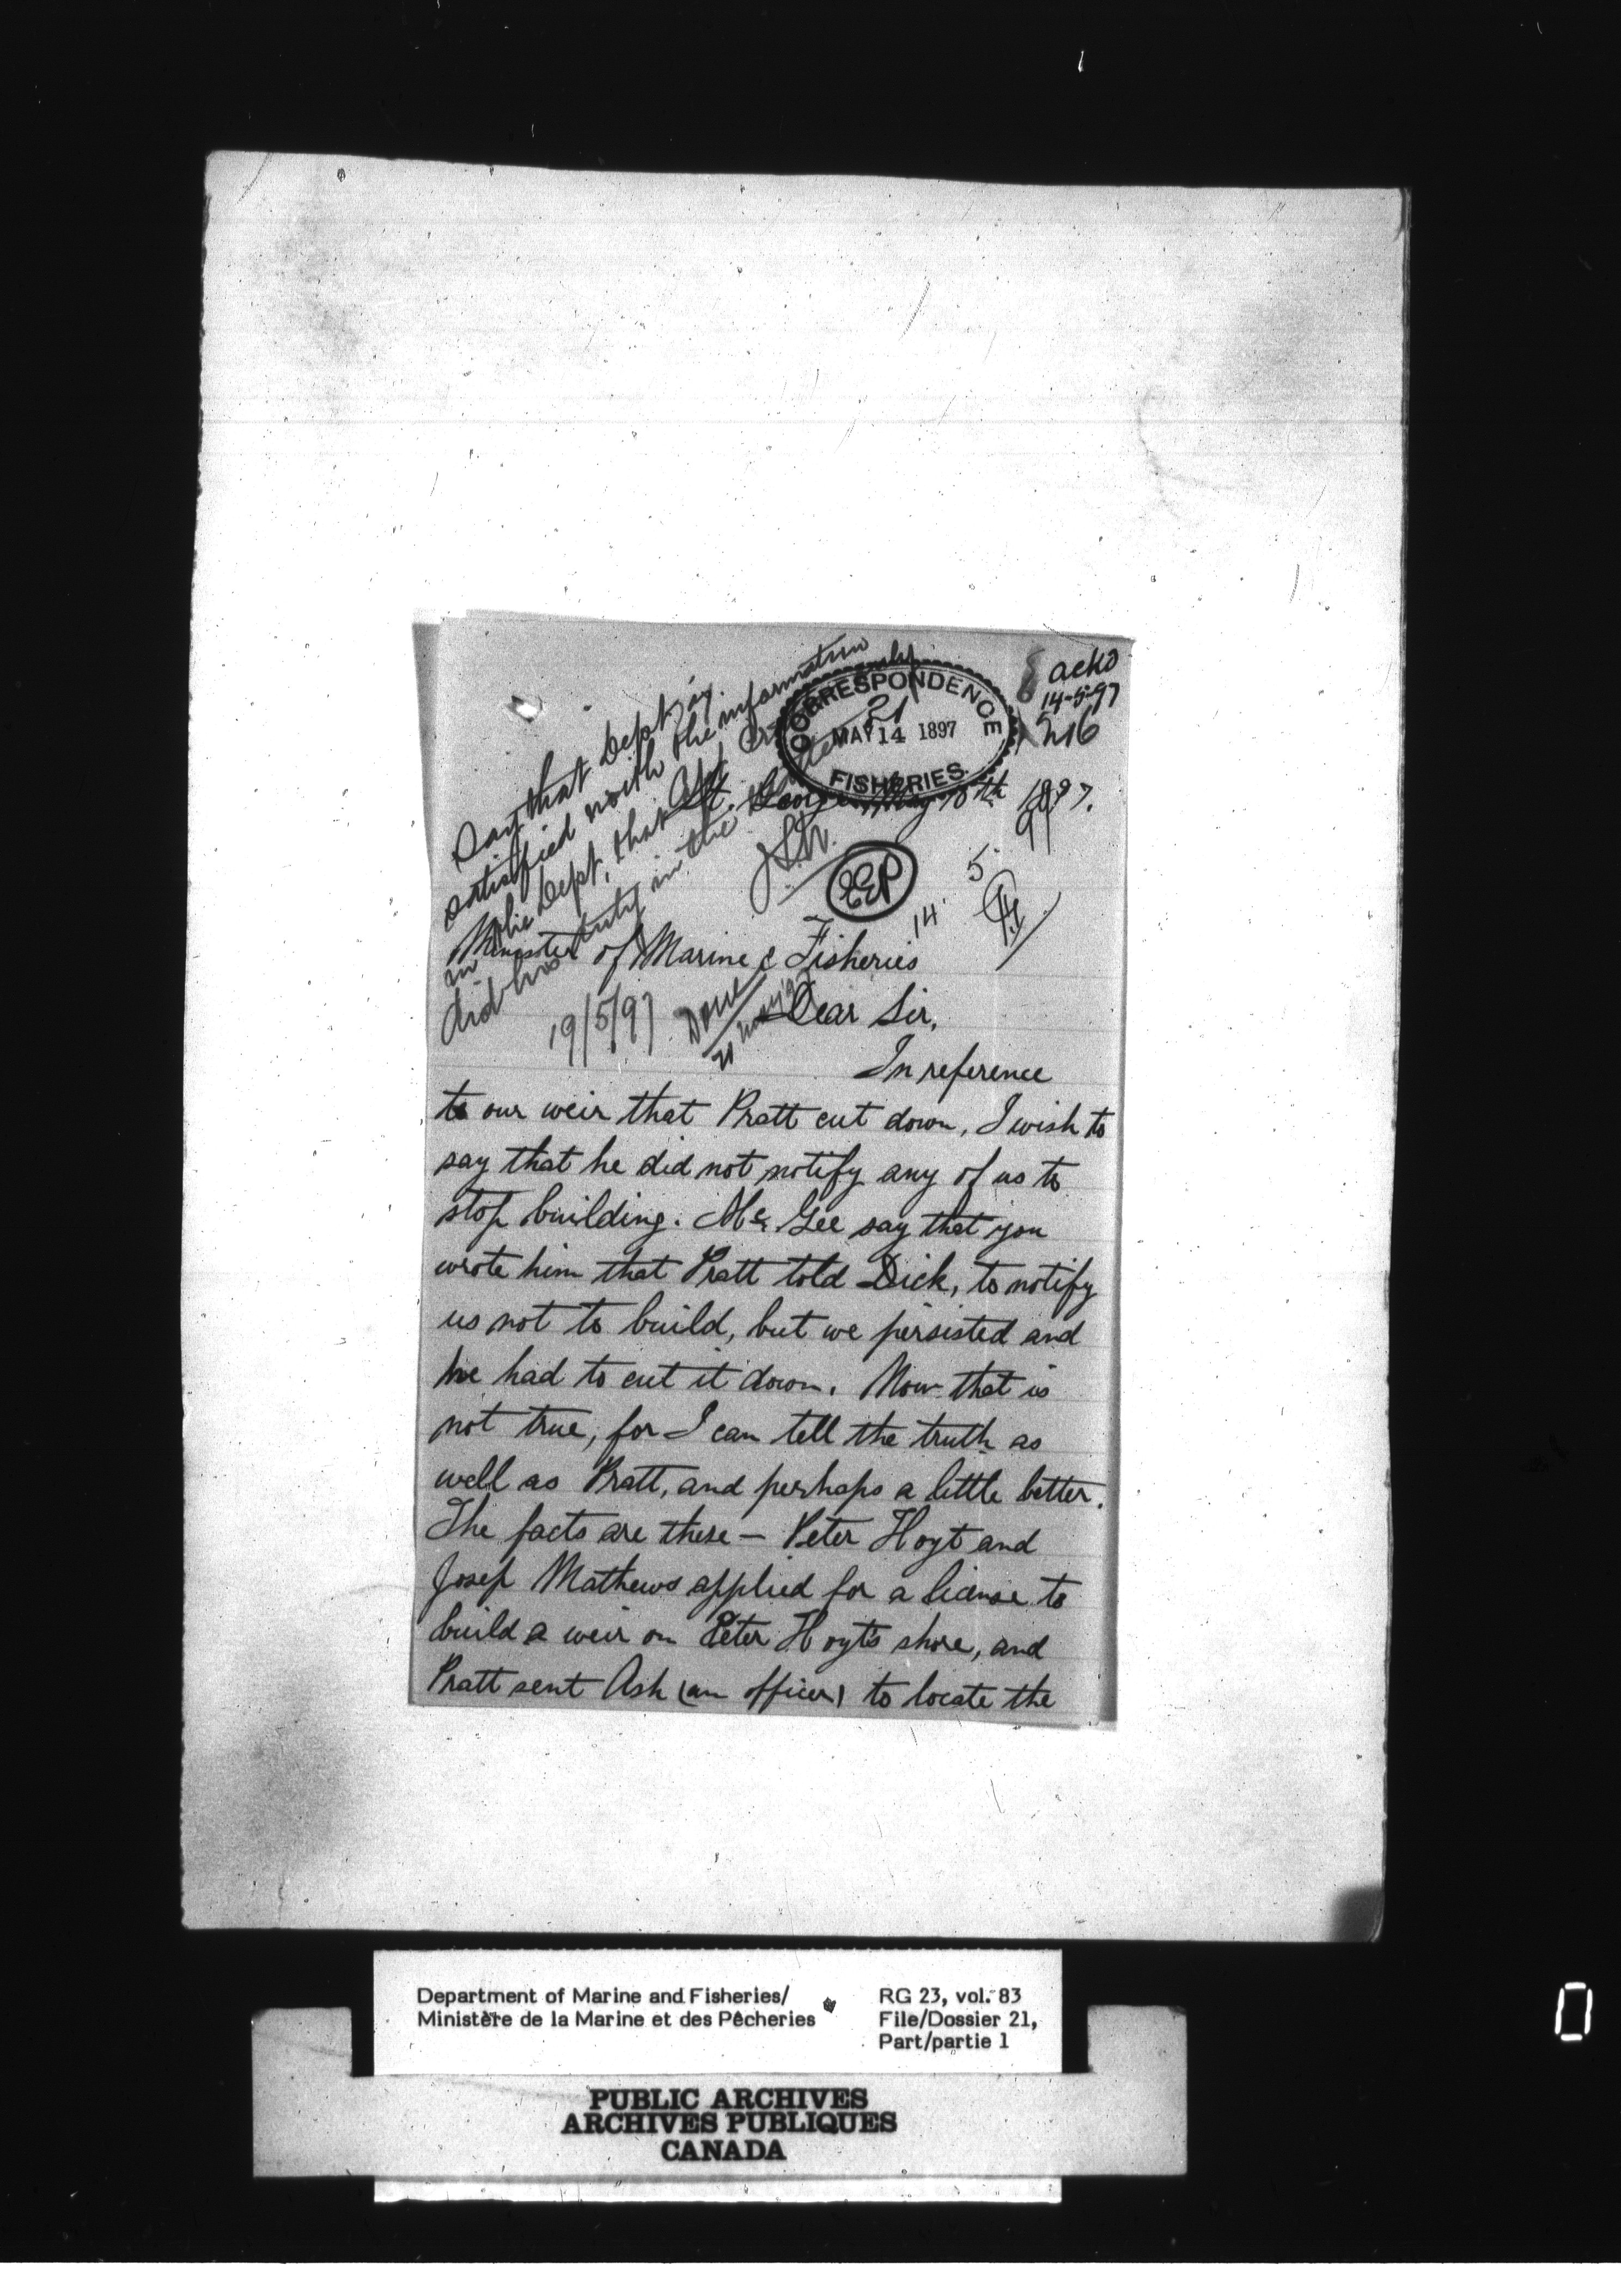 ackd
14-5-97
216
CORRESPONDENCE
21
MAY 14 1897
FISHERIES
St. George, May 10th 1897.
Say that Dept is
satisfied with the information
in the Dept, that
did his duty in the
19/5/97
Done
EEP
14. 5.
Minister of Marine & Fisheries
Dear Sir,
In reference
to our weir that Pratt cut down, I wish to
say that he did not notify any of us to
stop building. Mc Gee say that you
wrote him that Pratt told Dick, to notify
us not to build, but we persisted and
he had to cut it down. Now that is
not true, for I can tell the truth as
well as Pratt, and perhaps a little better.
The facts are these — Peter Hoyt and
Josep Mathews applied for a license to
build a weir on Peter Hoyt's shore, and
Pratt sent Ash (an officer) to locate the
Department of Marine and Fisheries/
Ministère de la Marine et des Pêcheries
RG 23, vol. 83
File/Dossier 21,
Part/partie 1
PUBLIC ARCHIVES
ARCHIVES PUBLIQUES
CANADA